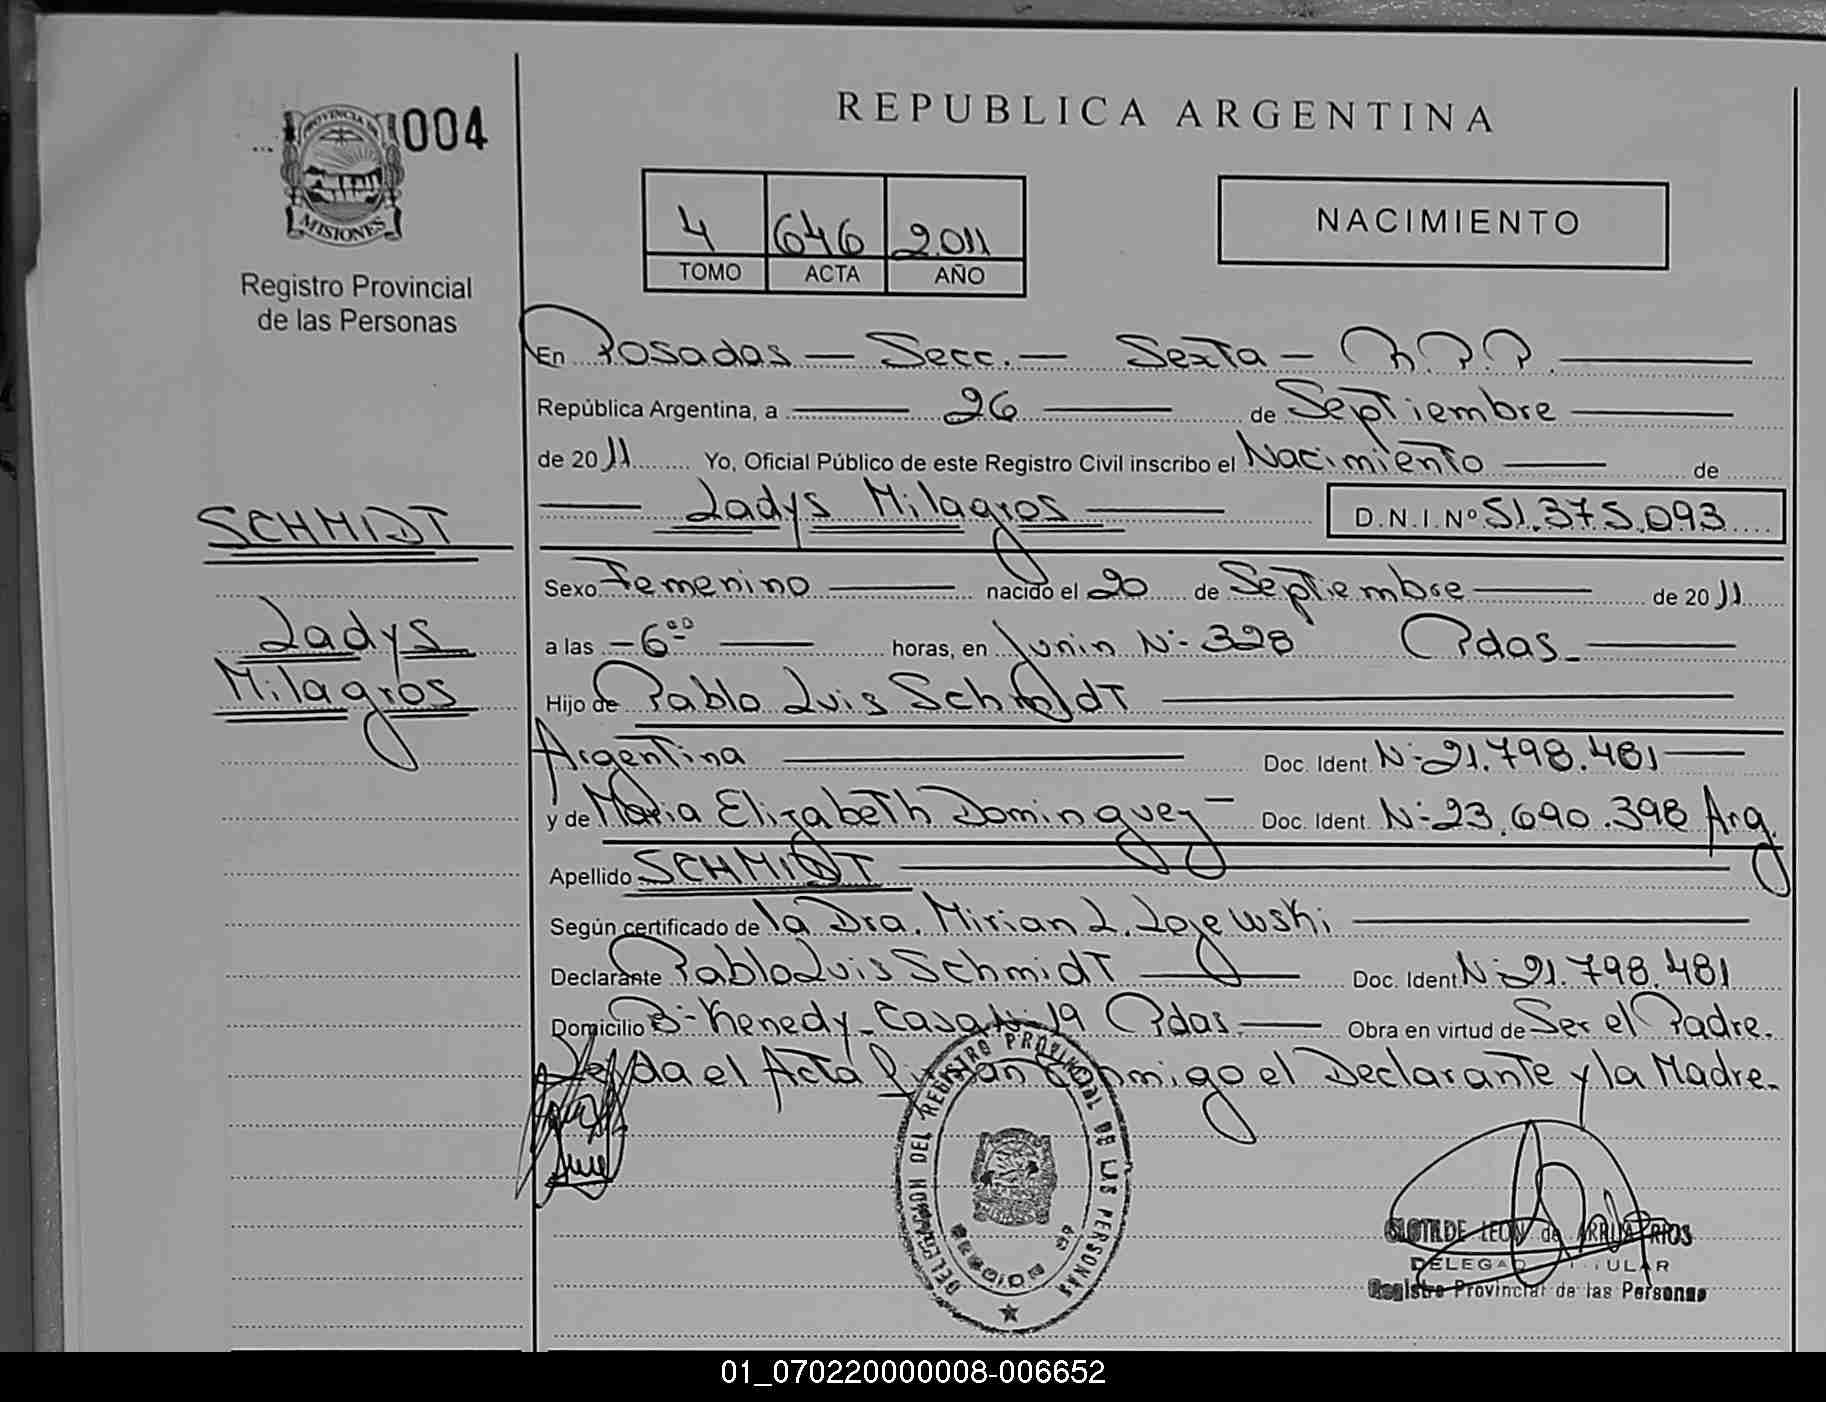 PROVINCIA DE
MISIONES
004
Registro Provincial
de las Personas
REPUBLICA ARGENTINA
4 646 2.011
TOMO ACTA AÑO
NACIMIENTO
En Posadas — Secc. — Sexta — R.P.P.
República Argentina, a — 26 — de Septiembre —
de 2011 Yo, Oficial Público de este Registro Civil inscribo el Nacimiento — de
— Ladys Milagros — D.N.I.Nº 51.375.093
SCHMIDT
Ladys
Milagros
Sexo Femenino — nacido el 20 de Septiembre — de 2011
a las -6ºº — horas, en Junin Nº 328 Pdas. —
Hijo de Pablo Luis Schmidt —
Argentina — Doc. Ident. Nº 21.798.481 —
y de Maria Elizabeth Dominguez — Doc. Ident. Nº 23.690.398 Arg.
Apellido SCHMIDT —
Según certificado de la Dra. Mirian L. —
Declarante Pablo Luis Schmidt — Doc. Ident Nº 21.798.481
Domicilio Bº Kenedy - Casa Nº 19 Pdas. — Obra en virtud de Ser el Padre.
el Acta conmigo el Declarante y la Madre.
DELEGACION DEL REGISTRO PROVINCIAL DE LAS PERSONAS
CLOTILDE LEON de ARRUA RIOS
DELEGADO TITULAR
Registro Provincial de las Personas
01_070220000008-006652